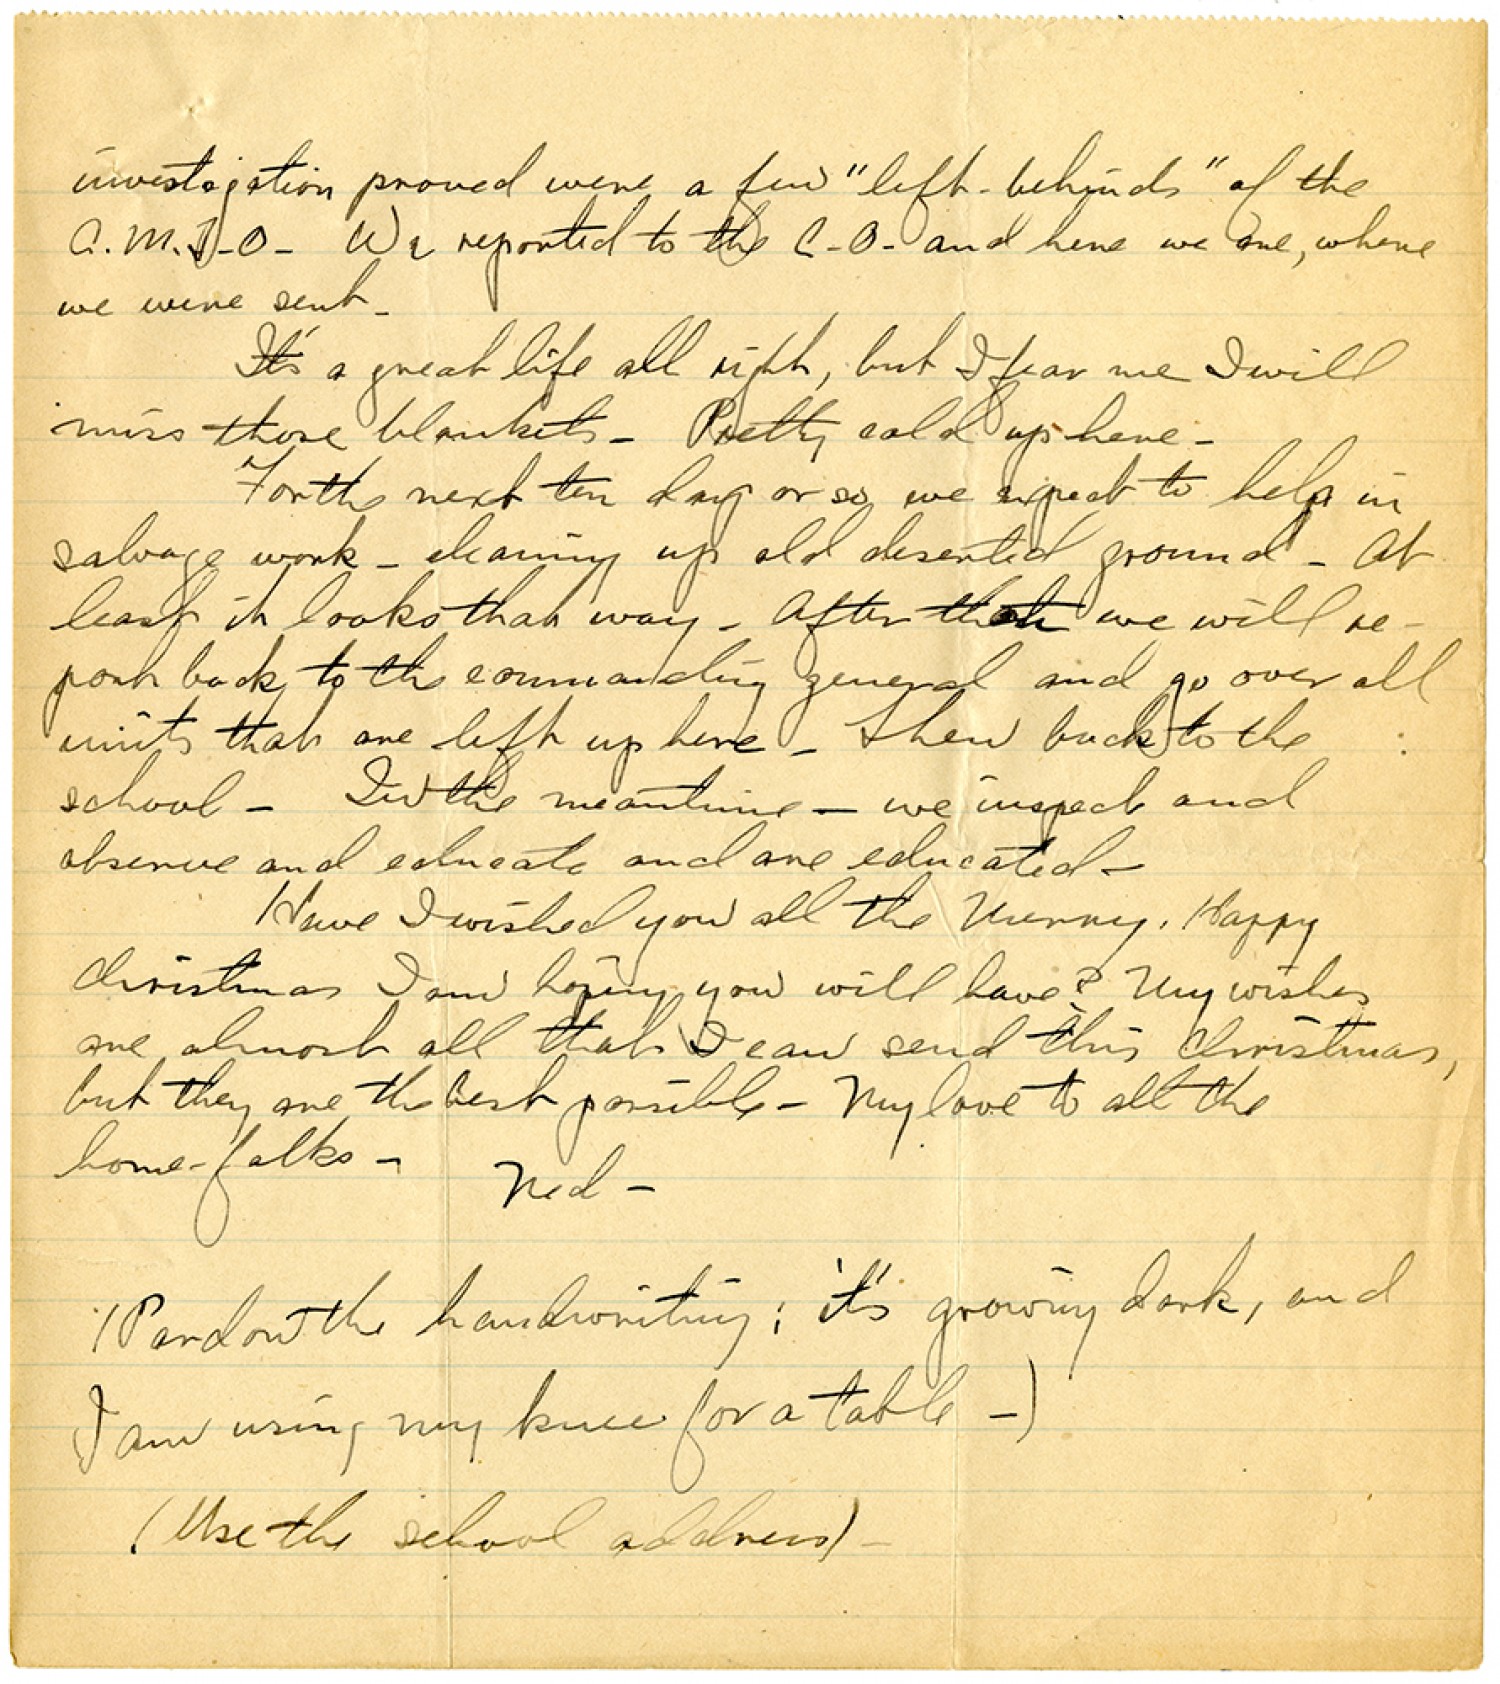 investigation proved were a few "left-behinds" of the
A.M.T-O- We reported to the C-O- and here we are, where
we were sent-
It's a great life all right, but I fear me I will
miss those blankets- Pretty cold up here-
For the next ten days or so, we expect to help in
salvage work - cleaning up old deserted ground - At
least it looks that way - After that we will re-
port back to the commanding general and go over all
units that are left up here - Then back to the
school - In the meantime - we inspect and
observe and educate and are educated-
Have I wished you all the Merry, Happy
Christmas I am hoping you will have? My wishes
are almost all that I can send this Christmas,
but they are the best possible- My love to all the
home-folks-
Ned-
(Pardon the handwriting; it's growing dark, and
I am using my knee for a table -)
(Use the school address)-